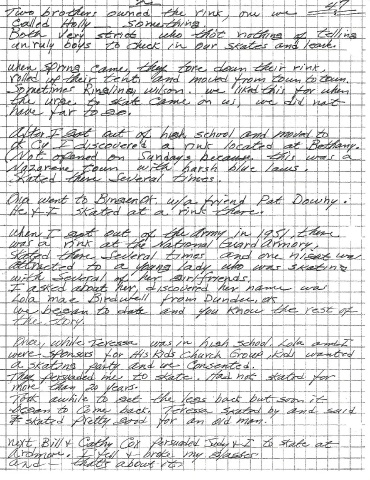 47
the
Two brothers owned the rink, one we
called Holly something.
Both very strict who thot nothing of telling
unruly boys to check in our skates and leave.
when spring came they tore down their rink,
rolled up their tent and moved from town to town.
Sometimes Ringling, wilson. we liked this for when
the urge to skate came on us, we did not
have far to go.
After I got out of high school and moved to
Ok Cy I discovered a rink located at Bethany.
(Not opened on Sundays because this was a
Nazarene Town with harsh blue laws.
Skated there several times.
Once went to Binger Ok. w/a friend Pat Downy.
He & I skated at a rink there.
when I got out of the Army in 1951, there
was a rink at the National Guard Armory,
skated there several times and one night was
attracted to a young lady who was skating
with several of her girlfriends.
I asked about her, discovered her name was
Lola mae Birdwell from Dundee, ok
we began to date and you know the rest of
the story.
Once, while Teressa was in high school, Lola and I
were sponsors for His Kids Church Group, Kids wanted
a skating party and we consented.
They persuaded me to skate. Had not skated for
more than 20 years.
Took awhile to get the legs back but soon it
began to come back. Teressa skated by and said
I skated pretty good for an old man.
next, Bill & Cathy Cox persuaded Judy & I to skate at
Ardmore. I fell & broke my glasses
and — that's about it!